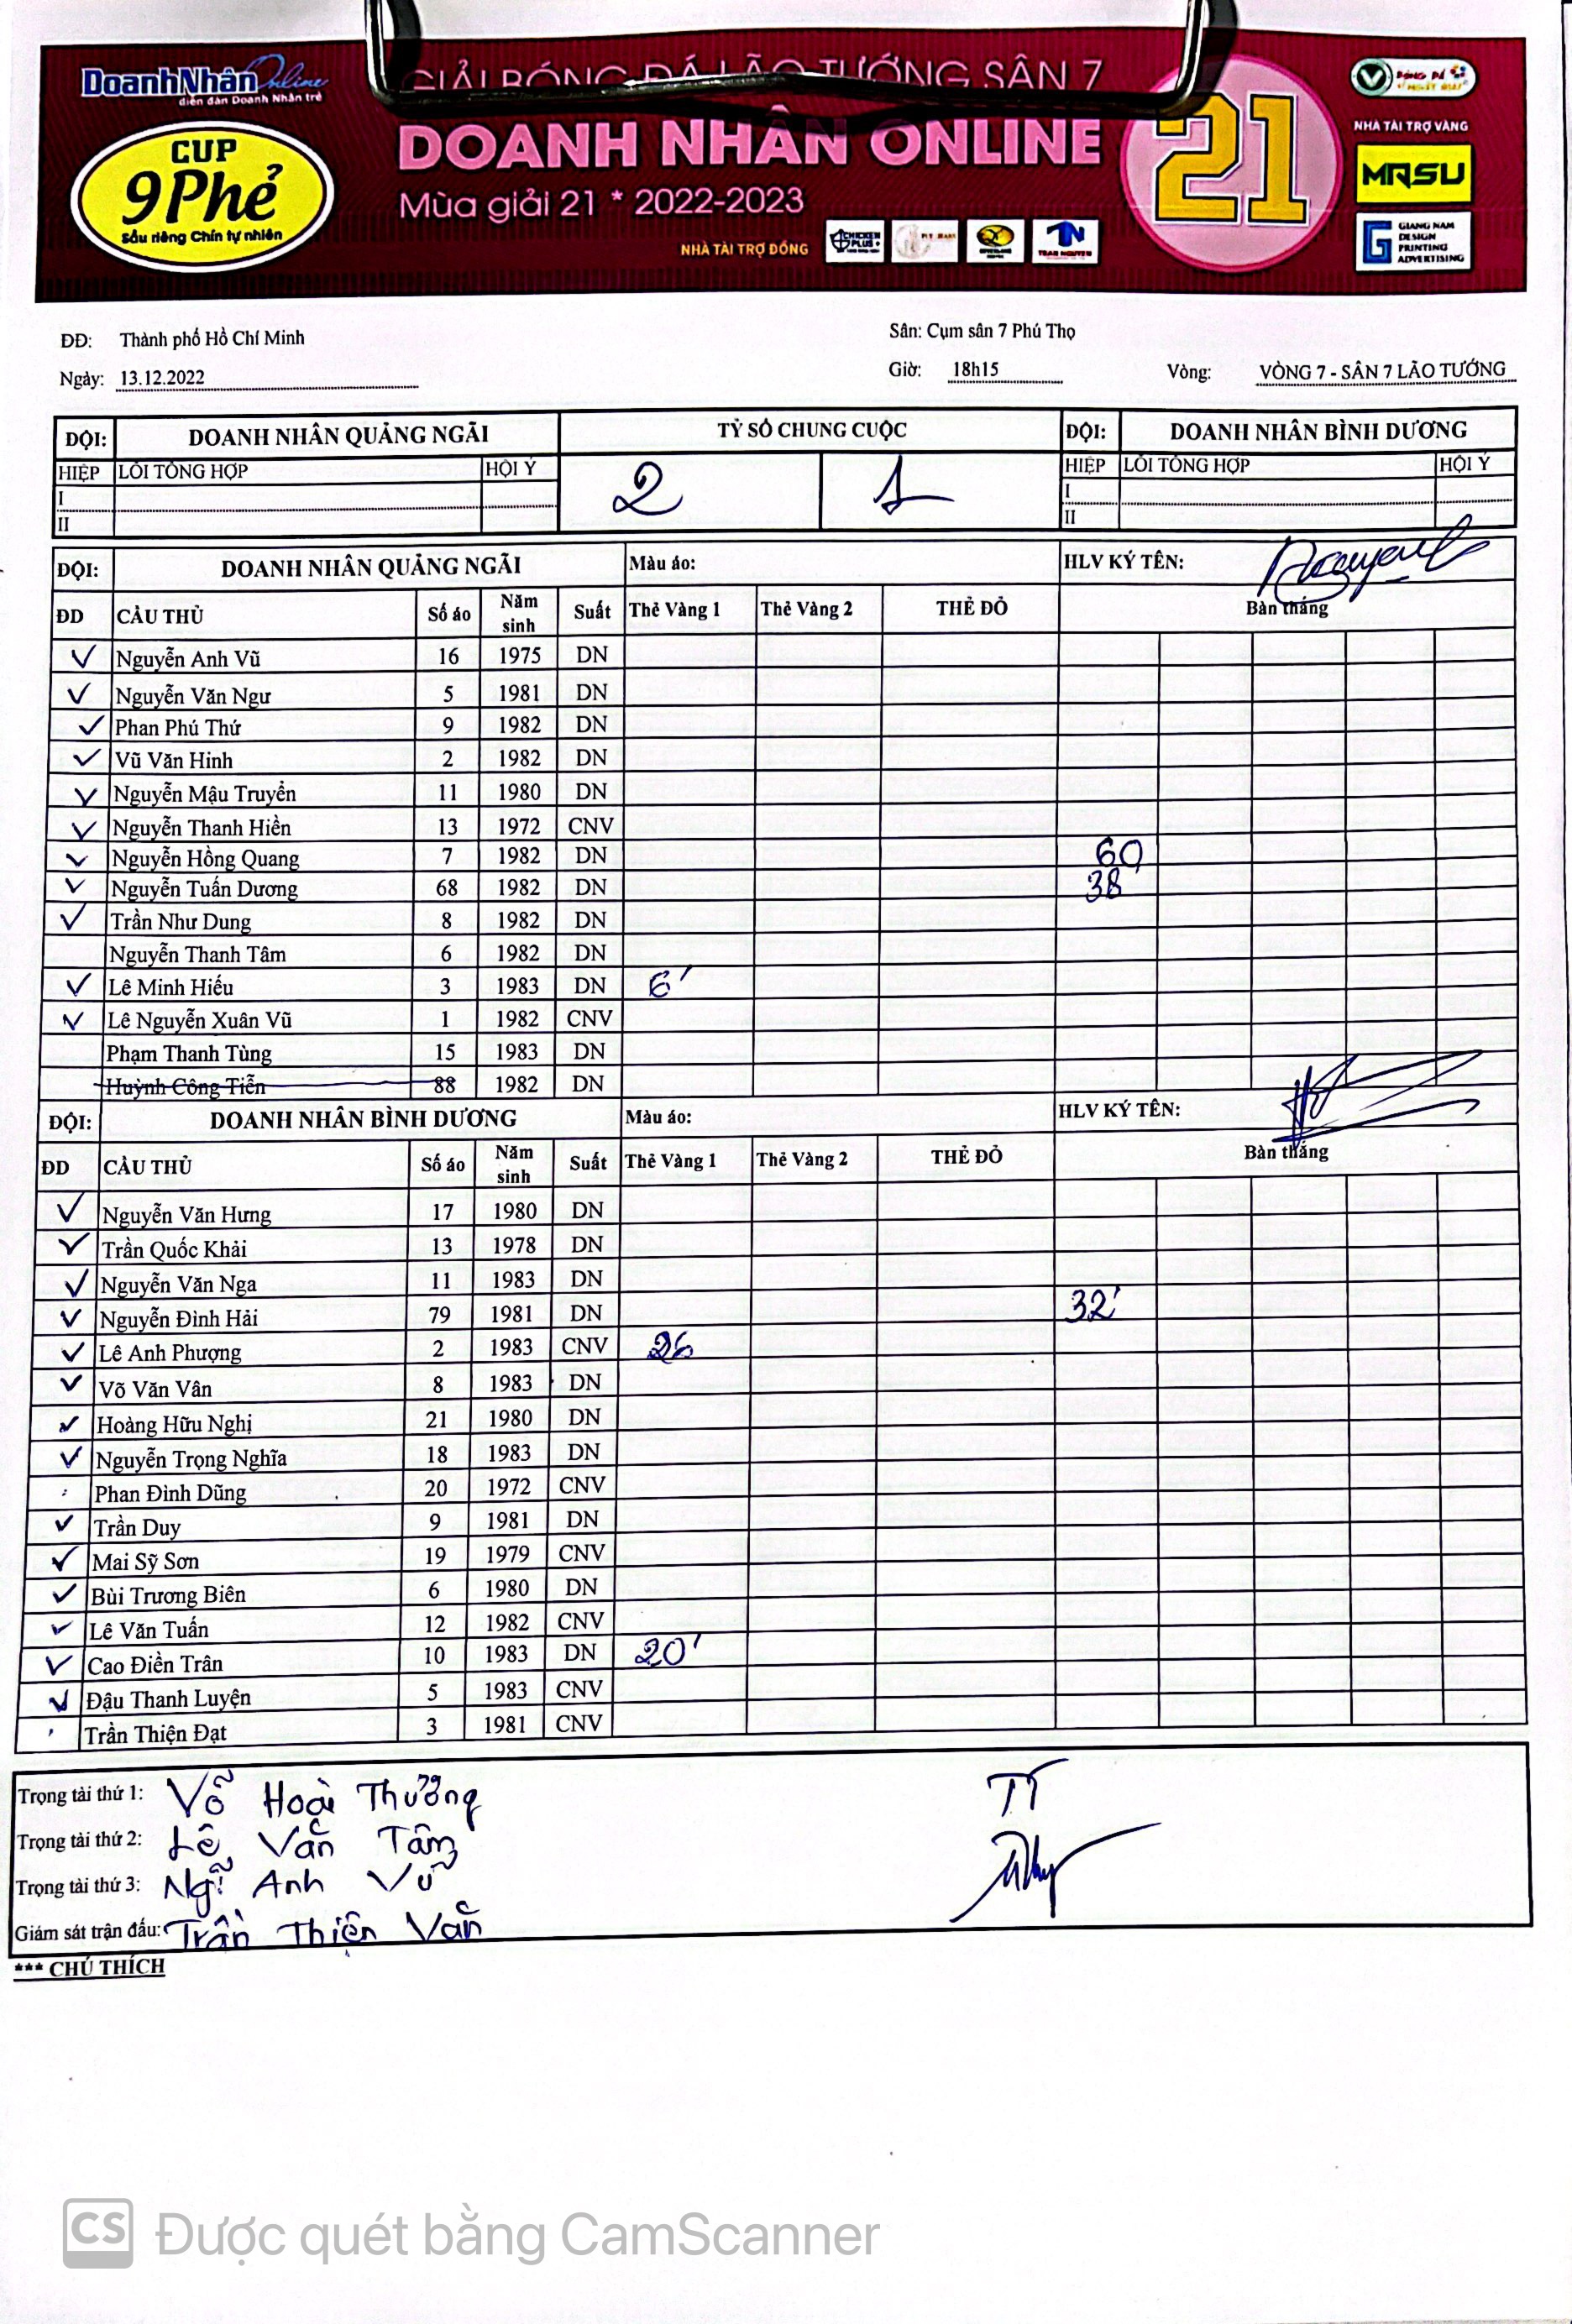 DoanhNhânOnline
diễn đàn Doanh Nhân trẻ
GIẢI BÓNG ĐÁ LÃO TƯỚNG SÂN 7
DOANH NHÂN ONLINE
Mùa giải 21 * 2022-2023
21
CUP
9Phẻ
Sầu riêng Chín tự nhiên
NHÀ TÀI TRỢ ĐỒNG
CHICKEN PLUS
TN
NHÀ TÀI TRỢ VÀNG
MASU
GIANG NAM
DESIGN
PRINTING
ADVERTISING
ĐĐ: Thành phố Hồ Chí Minh Sân: Cụm sân 7 Phú Thọ
Ngày: 13.12.2022 Giờ: 18h15 Vòng: VÒNG 7 - SÂN 7 LÃO TƯỚNG
ĐỘI: DOANH NHÂN QUẢNG NGÃI TỶ SỐ CHUNG CUỘC ĐỘI: DOANH NHÂN BÌNH DƯƠNG
HIỆP LỖI TỔNG HỢP HỘI Ý 2 1 HIỆP LỖI TỔNG HỢP HỘI Ý
I I
II II
ĐỘI: DOANH NHÂN QUẢNG NGÃI Màu áo: HLV KÝ TÊN:
ĐD CẦU THỦ Số áo Năm sinh Suất Thẻ Vàng 1 Thẻ Vàng 2 THẺ ĐỎ Bàn thắng
✓ Nguyễn Anh Vũ 16 1975 DN
✓ Nguyễn Văn Ngư 5 1981 DN
✓ Phan Phú Thứ 9 1982 DN
✓ Vũ Văn Hinh 2 1982 DN
✓ Nguyễn Mậu Truyền 11 1980 DN
✓ Nguyễn Thanh Hiền 13 1972 CNV
✓ Nguyễn Hồng Quang 7 1982 DN 60
✓ Nguyễn Tuấn Dương 68 1982 DN 38
✓ Trần Như Dung 8 1982 DN
Nguyễn Thanh Tâm 6 1982 DN
✓ Lê Minh Hiếu 3 1983 DN 6'
✓ Lê Nguyễn Xuân Vũ 1 1982 CNV
Phạm Thanh Tùng 15 1983 DN
Huỳnh Công Tiễn 88 1982 DN
ĐỘI: DOANH NHÂN BÌNH DƯƠNG Màu áo: HLV KÝ TÊN:
ĐD CẦU THỦ Số áo Năm sinh Suất Thẻ Vàng 1 Thẻ Vàng 2 THẺ ĐỎ Bàn thắng
✓ Nguyễn Văn Hưng 17 1980 DN
✓ Trần Quốc Khải 13 1978 DN
✓ Nguyễn Văn Nga 11 1983 DN
✓ Nguyễn Đình Hải 79 1981 DN 32'
✓ Lê Anh Phượng 2 1983 CNV 26
✓ Võ Văn Vân 8 1983 DN
✓ Hoàng Hữu Nghị 21 1980 DN
✓ Nguyễn Trọng Nghĩa 18 1983 DN
Phan Đình Dũng 20 1972 CNV
✓ Trần Duy 9 1981 DN
✓ Mai Sỹ Sơn 19 1979 CNV
✓ Bùi Trương Biên 6 1980 DN
✓ Lê Văn Tuấn 12 1982 CNV
✓ Cao Điền Trân 10 1983 DN 20'
✓ Đậu Thanh Luyện 5 1983 CNV
Trần Thiện Đạt 3 1981 CNV
Trọng tài thứ 1: Võ Hoài Thưởng
Trọng tài thứ 2: Lê Văn Tâm
Trọng tài thứ 3: Ng Anh Vũ
Giám sát trận đấu: Trần Thiện Văn
*** CHÚ THÍCH
CS Được quét bằng CamScanner